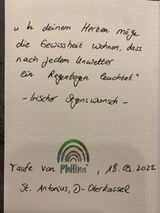 „In deinem Herzen möge
die Gewissheit wohnen, dass
nach jedem Unwetter
ein Regenbogen leuchtet"
- Irischer Segenswunsch -
Taufe von Philina, 18.09.2022
St. Antonius, D-Oberkassel